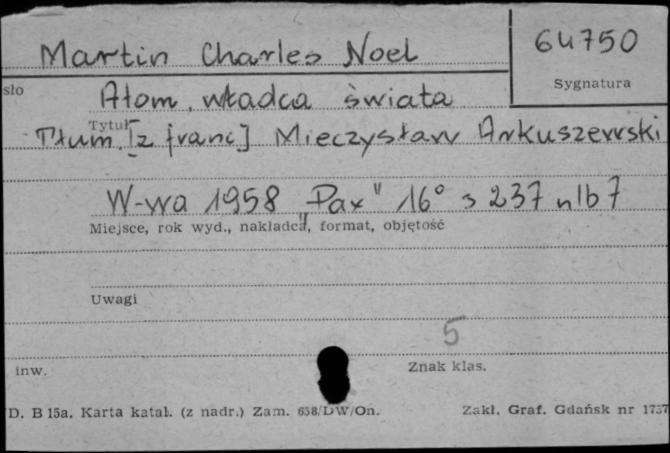 Martin Charles Noel
64750
Sygnatura
sło
Atom władca świata
Tytuł
Tłum. [z franc] Mieczysław Arkuszewski
W-wa 1958 „Pax" 16° s 237 nlb 7
Miejsce, rok wyd., nakładca, format, objętość
Uwagi
5
inw.
Znak klas.
D. B 15a. Karta katal. (z nadr.) Zam. 638/DW/On.
Zakł. Graf. Gdańsk nr 1737